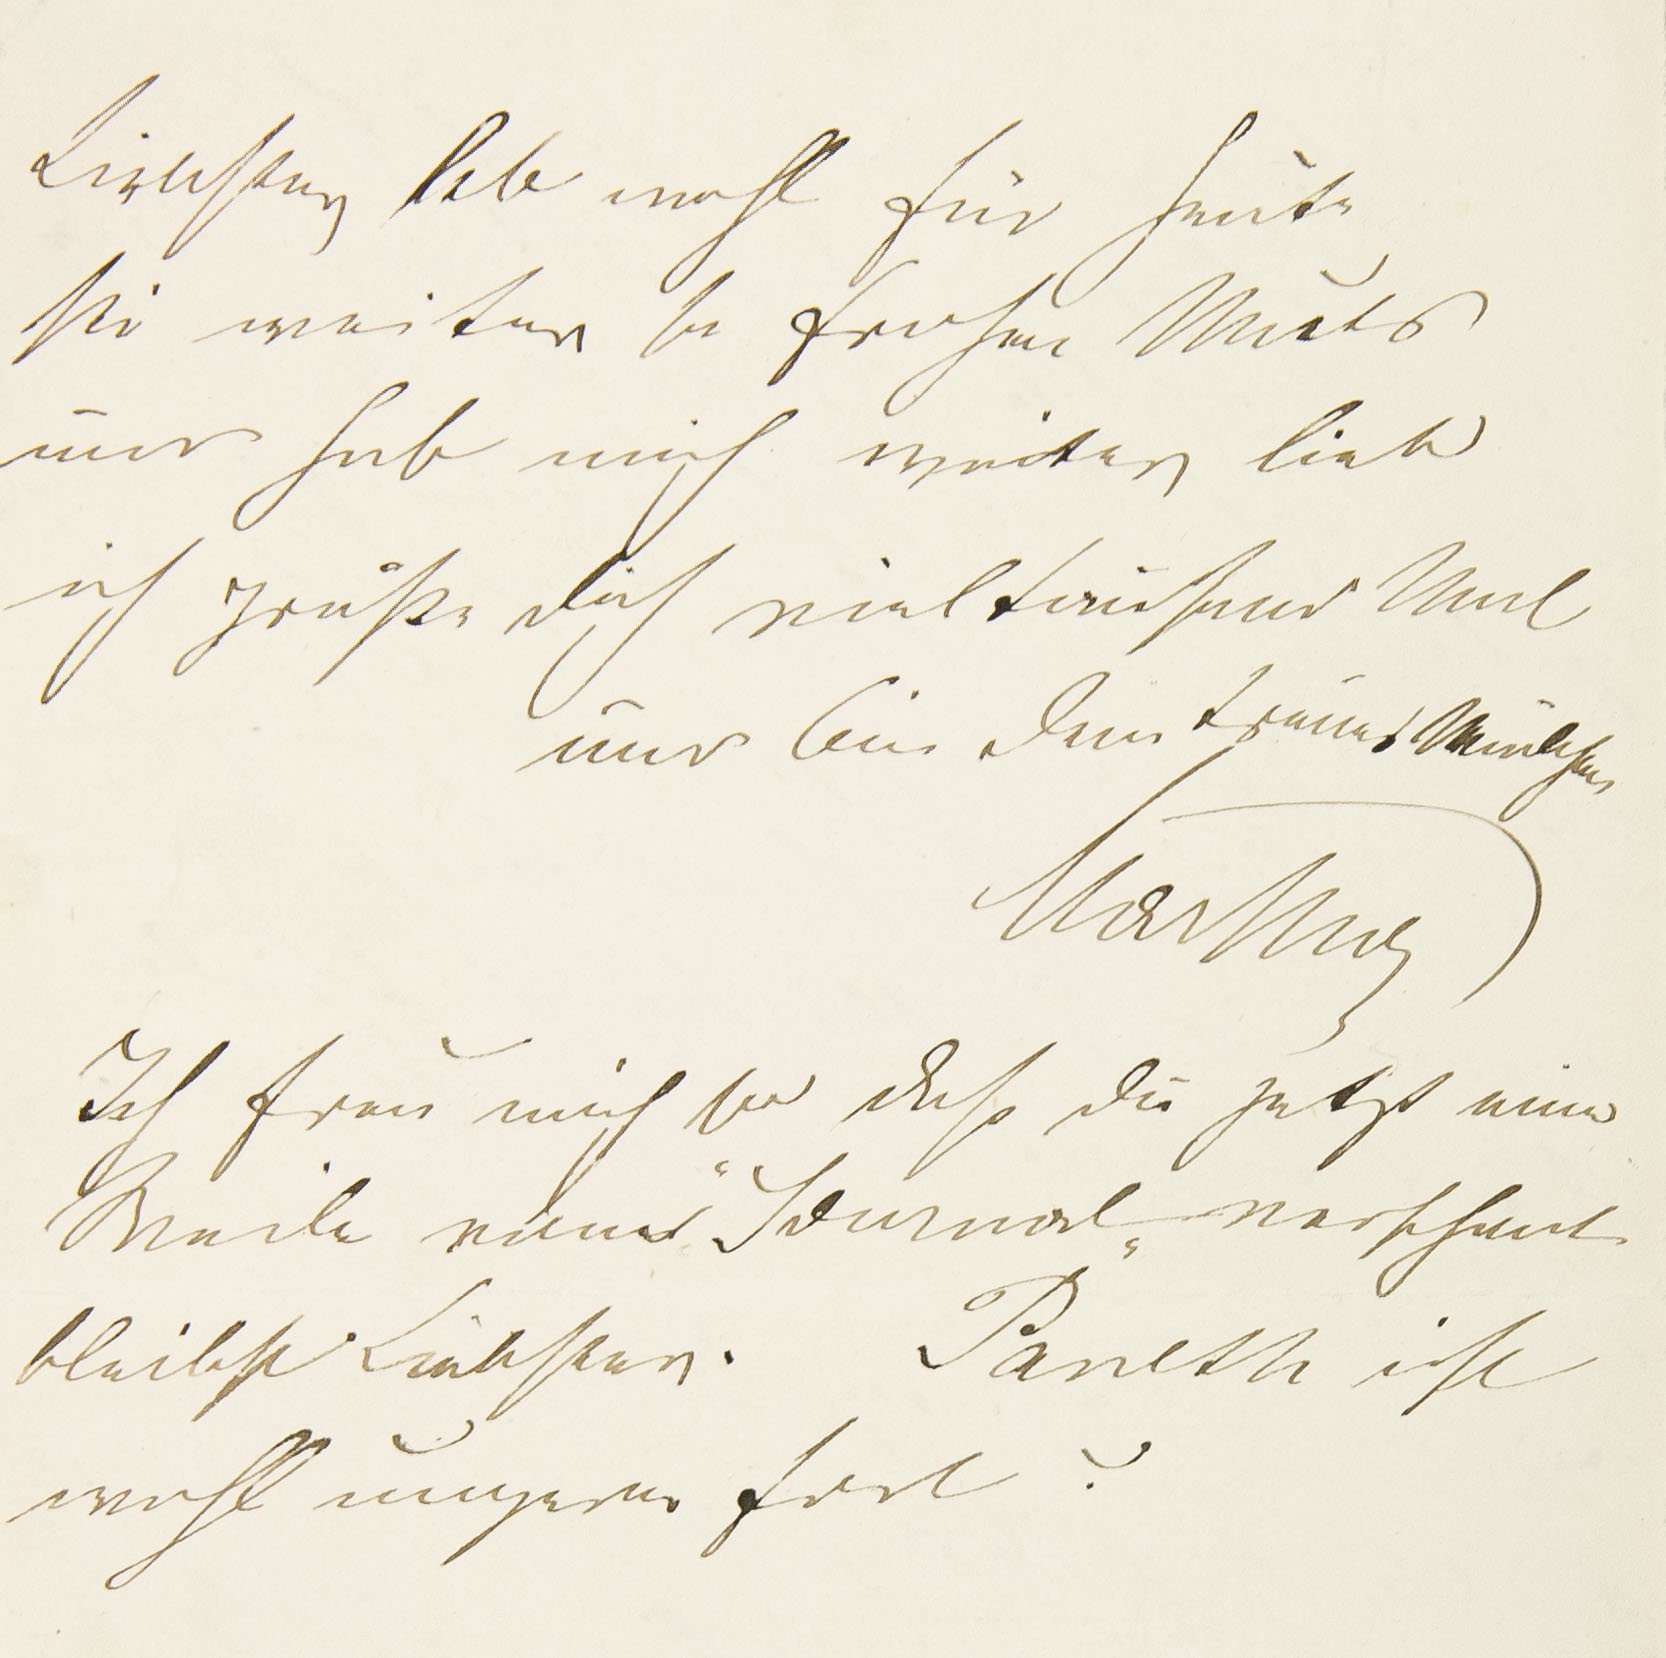 Liebster, leb wohl für heute
sei weiter so frohen Muts
und hab mich weiter lieb
ich grüße dich vieltausend Mal
und bin dein treues Mädchen
Martha
Ich freu mich so daß du jetzt eine
Weile vom "Journal" verschont
bleibst Liebster. Paneth ist
wohl ungern fort?